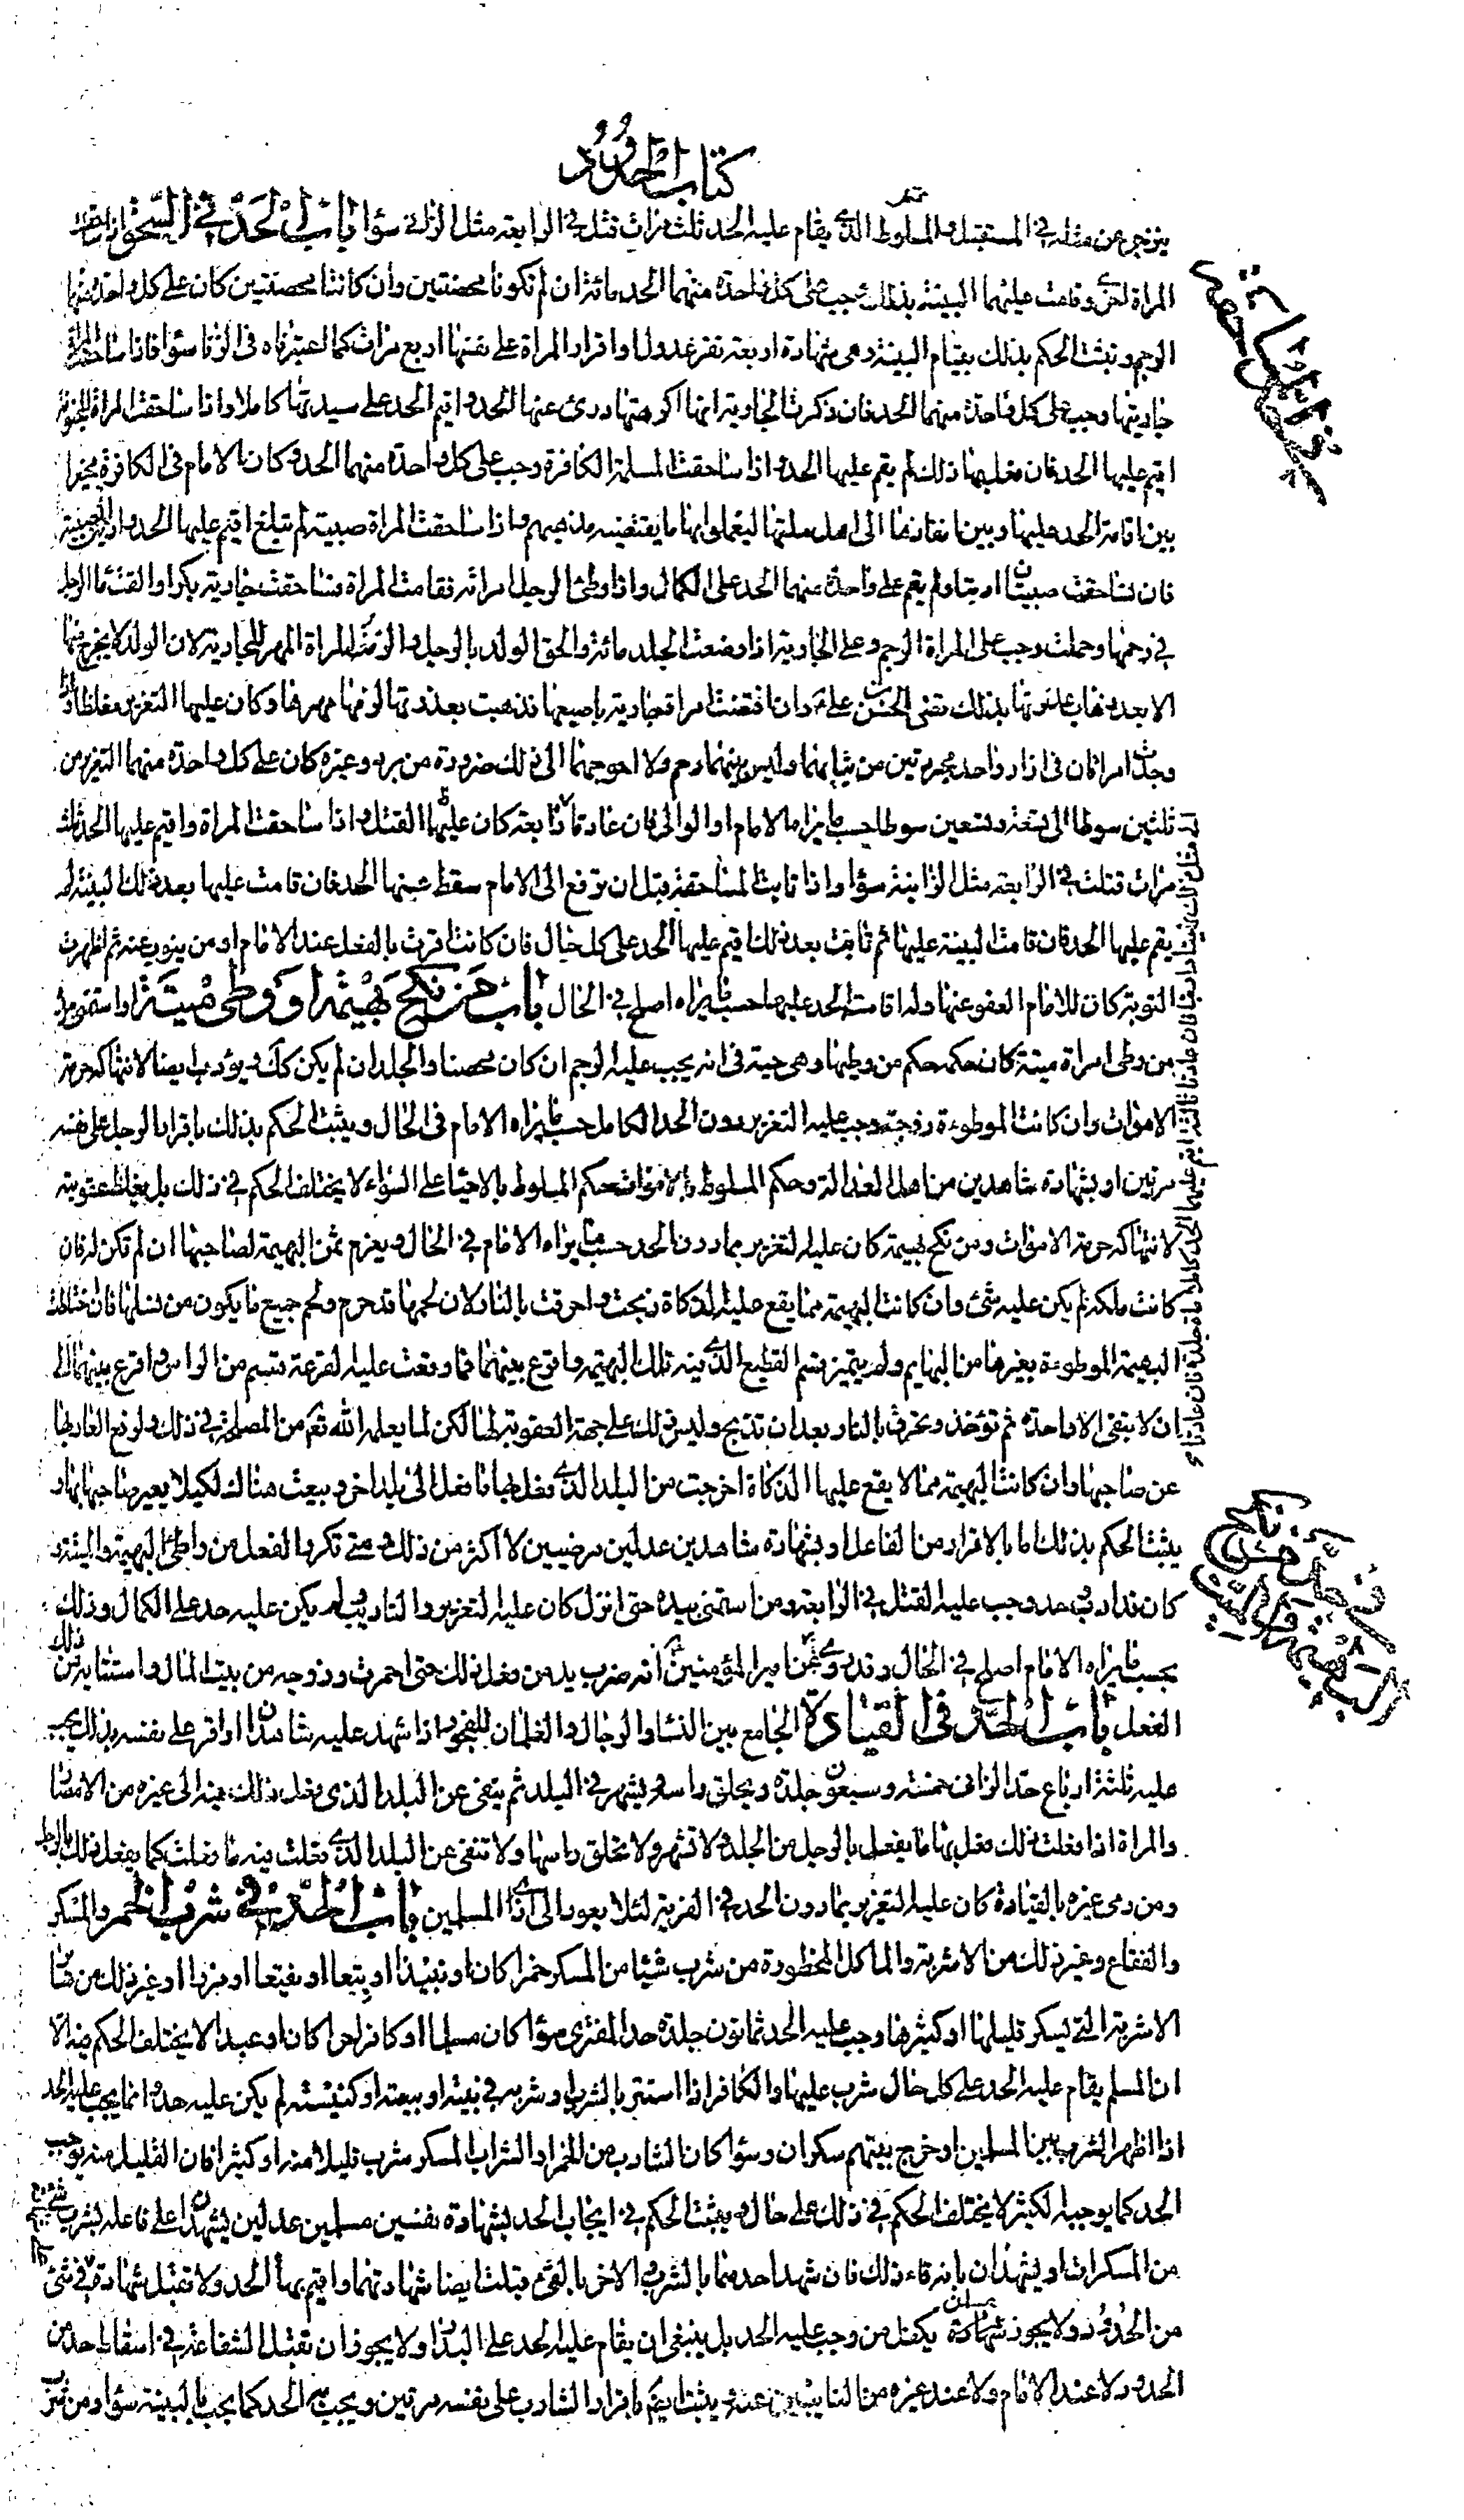 كتاب الحدود
ينزجر عن مثله في المستقبل والمتلوط الذي يقام عليه الحد ثلث مرات قتل في الرابعة مثل الزاني سؤا باب الحد في السحق اذا ساحقت
المراة اخرى وقامت عليهما البينة بذلك وجب على كل واحدة منهما الحد مائة ان لم تكونا محصنتين وان كانتا محصنتين كان على كل واحدة منهما
الرجم ويثبت الحكم بذلك بقيام البينة وهى شهادة اربعة نفر عدول او اقرار المراة على نفسها اربع مرات كما اعتبرناه فى الزنا سؤا فاذا ساحقت المراة
جاريتها وجب على كل واحدة منهما الحد فان ذكرت الجارية انها اكرهتها درئ عنها الحد واقيم الحد على سيدتها كاملا واذا ساحقت المراة المجنونة
اقيم عليها الحد فان فعل بها ذلك لم يقم عليها الحد واذا ساحقت المسلمة الكافرة وجب على كل واحدة منهما الحد وكان الامام فى الكافرة مخيرا
بين اقامة الحد عليها وبين انفاذها الى اهل ملتها ليعملوا بها ما يقتضيه مذهبهم واذا ساحقت المراة صبية لم تبلغ اقيم عليها الحد وادبت الصبية
فان تساحقت صبيتان ادبتا ولم يقم على واحدة منهما الحد على الكمال واذا وطئ الرجل امراته فقامت المراة فساحقت جارية بكرا والقت ماء الرجل
في رحمها وحملت وجب على المراة الرجم وعلى الجارية اذا وضعت الجلد مائة والحق الولد بالرجل والزمت المراة المهر للجارية لان الولد لا يخرج منها
الا بعد ذهاب عذرتها بذلك قضى الحسن بن على ع وان افتضت امراة جارية باصبعها فذهبت بعذرتها لزمها مهرها وكان عليها التعزير مغلظا واذا
وجدت امراتان فى ازار واحد مجردتين من ثيابهما وليس بينهما رحم ولا احوجهما الى ذلك ضرورة من برد وغيره كان على كل واحدة منهما التعزير من
ثلثين سوطا الى تسعة وتسعين سوطا حسب ما يراه الامام او الوالى فان عادتا رابعة كان عليهما القتل واذا ساحقت المراة واقيم عليها الحد ثلث
مرات قتلت في الرابعة مثل الزانية سؤا واذا تابت المساحقة قبل ان ترفع الى الامام سقط عنها الحد فان قامت عليها بعد ذلك البينة لم
يقم عليها الحد فان قامت البينة عليها ثم تابت بعد ذلك اقيم عليها الحد على كل حال فان كانت اقرت بالفعل عند الامام او من ينوب عنه ثم اظهرت
التوبة كان للامام العفو عنها وله اقامة الحد عليها حسب ما يراه اصلح في الحال باب من نكح بهيمة او وطى ميتة او استمنى بيده
من وطى امراة ميتة كان حكمه حكم من وطيها وهى حية فى انه يجب عليه الرجم ان كان محصنا والجلد ان لم يكن كك ويؤدب ايضا لانتهاكه حرمة
الاموات وان كانت الموطوءة زوجته وجب عليه التعزير دون الحد الكامل حسب ما يراه الامام فى الحال ويثبت الحكم بذلك باقرار الرجل على نفسه
مرتين او بشهادة شاهدين من اهل العدالة وحكم المتلوط بالاموات حكم المتلوط بالاحيا على السواء لا يختلف الحكم في ذلك بل يغلظ عقوبته
لانتهاكه حرمة الاموات ومن نكح بهيمة كان عليه التعزير بما دون الحد حسب ما يراه الامام في الحال ويغرم ثمن البهيمة لصاحبها ان لم تكن له فان
كانت ملكه لم يكن عليه شئ وان كانت البهيمة مما يقع عليه الذكاة ذبحت واحرقت بالنار لان لحمها قد حرم ولحم جميع ما يكون من نسلها فان اختلطت
البهيمة الموطوءة بغيرها من البهايم ولم يتميز قسم القطيع الذي فيه تلك البهيمة واقرع بينهما فما وقعت عليه القرعة قسم من الراس واقرع بينهما الى
ان لا يبقى الا واحدة ثم تؤخذ وتحرق بالنار بعد ان تذبح وليس ذلك على جهة العقوبة لها لكن لما يعلمه الله تع من المصلحة في ذلك ولدفع العار بها
عن صاحبها وان كانت البهيمة مما لا يقع عليها الذكاة اخرجت من البلد الذي فعل بها ما فعل الى بلد اخر وبيعت هناك لكيلا يعير صاحبها بها و
يثبت الحكم بذلك اما بالاقرار من الفاعل او بشهادة شاهدين عدلين مرضيين لا اكثر من ذلك ومتى تكرر الفعل من واطئ البهيمة والميتة و
كان قد ادب وحد وجب عليه القتل في الرابعة ومن استمنى بيده حتى انزل كان عليه التعزير والتاديب ولم يكن عليه حد على الكمال وذلك
بحسب ما يراه الامام اصلح في الحال وقد روى عن امير المؤمنين ع انه ضرب يد من فعل ذلك حتى احمرت وزوجه من بيت المال واستتابه من ذلك
الفعل باب الحد في القيادة الجامع بين النساء والرجال والغلمان للفجور اذا شهد عليه شاهدان او اقر على نفسه بذلك يجب
عليه ثلثة ارباع حد الزانى خمسة وسبعون جلدة ويحلق راسه ويشهر في البلد ثم ينفى عن البلد الذى فعل ذلك فيه الى غيره من الامصار
والمراة اذا فعلت ذلك فعل بها ما يفعل بالرجل من الجلد ولا تشهر ولا يحلق راسها ولا تنفى عن البلد الذي فعلت فيه ما فعلت كما يفعل ذلك بالرجل
ومن رمى غيره بالقيادة كان عليه التعزير بما دون الحد في الفرية لئلا يعود الى اذى المسلمين باب الحد في شرب الخمر والمسكر
والفقاع وغير ذلك من الاشربة والماكل المحظورة من شرب شيئا من المسكر خمرا كان او نبيذا او بتعا او نقيعا او مزرا او غير ذلك من ساير
الاشربة التى يسكر قليلها او كثيرها وجب عليه الحد ثمانون جلدة حد المفترى سؤا كان مسلما او كافرا حرا كان او عبدا لا يختلف الحكم فيه الا
ان المسلم يقام عليه الحد على كل حال شرب عليها والكافر اذا استتر بالشرب او شربه في بيته او بيعته او كنيسته لم يكن عليه حد وانما يجب عليه الحد
اذا اظهر الشرب بين المسلمين او خرج بينهم سكران وسؤا كان الشارب من الخمر او الشراب المسكر شرب قليلا منه او كثيرا فان القليل منه يوجب
الحد كما يوجبه الكثير لا يختلف الحكم في ذلك على حال ويثبت الحكم في ايجاب الحد بشهادة نفسين مسلمين عدلين يشهدان على فاعله بشرب شئ
من المسكرات او يشهدان بانه قاء ذلك فان شهد احدهما بالشرب والاخر بالقئ قبلت ايضا شهادتهما واقيم بها الحد ولا تقبل شهادة في شئ
من الحدود ولا يجوز ان يكفل من وجب عليه الحد بل ينبغى ان يقام عليه الحد على البدار ولا يجوز ان تقبل الشفاعة في اسقاط حد من
الحدود لا عند الامام ولا عند غيره من النايبين عنه ويثبت ايضا باقرار الشارب على نفسه مرتين ويجب به الحد كما يجب بالبينة سؤا ومن شرب